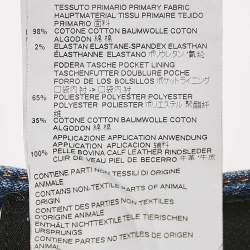 TESSUTO PRIMARIO PRIMARY FABRIC
HAUPTMATERIAL TISSU PRIMAIRE TEJIDO
PRIMARIO 面料
98% COTONE COTTON BAUMWOLLE COTON
ALGODON 綿 棉
2% ELASTAN ELASTANE-SPANDEX ELASTHAN
ELASTHANNE ELASTANO ポリウレタン/氨纶
FODERA TASCHE POCKET LINING
TASCHENFUTTER DOUBLURE POCHE
FORRO DE LOS BOLSILLOS
65% POLIESTERE POLYESTER POLYESTER
POLYESTER POLIESTER ポリエステル 聚酯纤维
35% COTONE COTTON BAUMWOLLE COTON
ALGODON 綿 棉
APPLICAZIONE APPLICATION ANWENDUNG
APPLICATION APLICACION
100% PELLE BOVINA CALF LEATHER RINDSLEDER
CUIR DE VEAU PIEL DE BECERRO 牛革/牛皮
CONTIENE PARTI NON TESSILI DI ORIGINE
ANIMALE
CONTAINS NON-TEXTILE PARTS OF ANIMAL
ORIGIN
ENTHÄLT NICHTTEXTILE TEILE TIERISCHEN
URSPRUNGS
CONTIENT DES PARTIES NON TEXTILES
D'ORIGINE ANIMALE